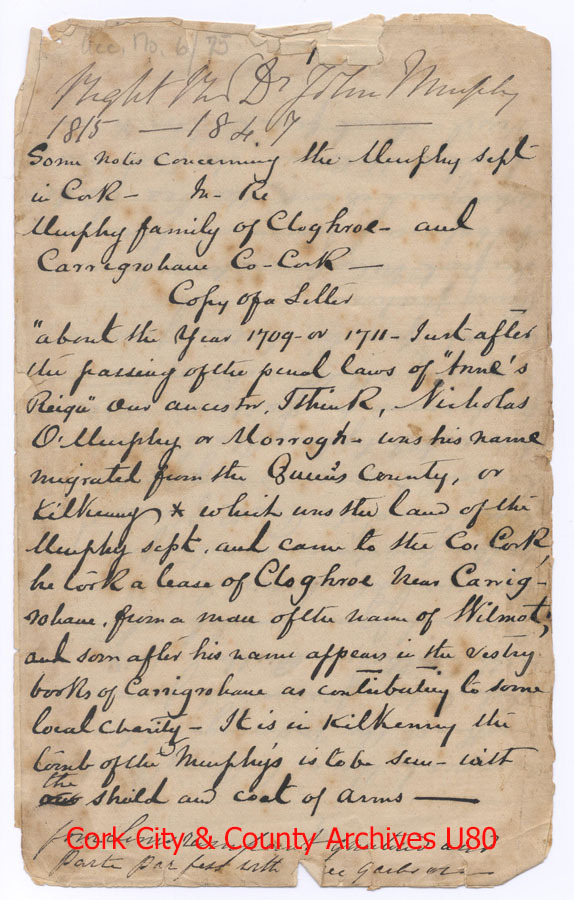 Acc. No. 6/75
1
Right Rev Dr John Murphy
1815 — 1847
Some notes concerning the Murphy sept
in Cork — In - Re
Murphy family of Cloghroe - and
Carrigrohane Co - Cork —
Copy of a Letter
"about the Year 1709 - or 1711 - Just after
the passing of the penal laws of "Anne's
Reign" our ancestor, I think, Nicholas
O'Murphy or Morrogh - was his name
migrated from the Queen's County, or
Kilkenny * which was the land of the
Murphy sept. and came to the Co. Cork,
he took a lease of Cloghroe near Carrig-
rohane, from a man of the name of Wilmot;
and soon after his name appears in the vestry
books of Carrigrohane as contributing to some
local charity - It is in Kilkenny the
tomb of the Murphy's is to be seen - with
the
shield and coat of arms —
Parte par fess with
Cork City & County Archives U80